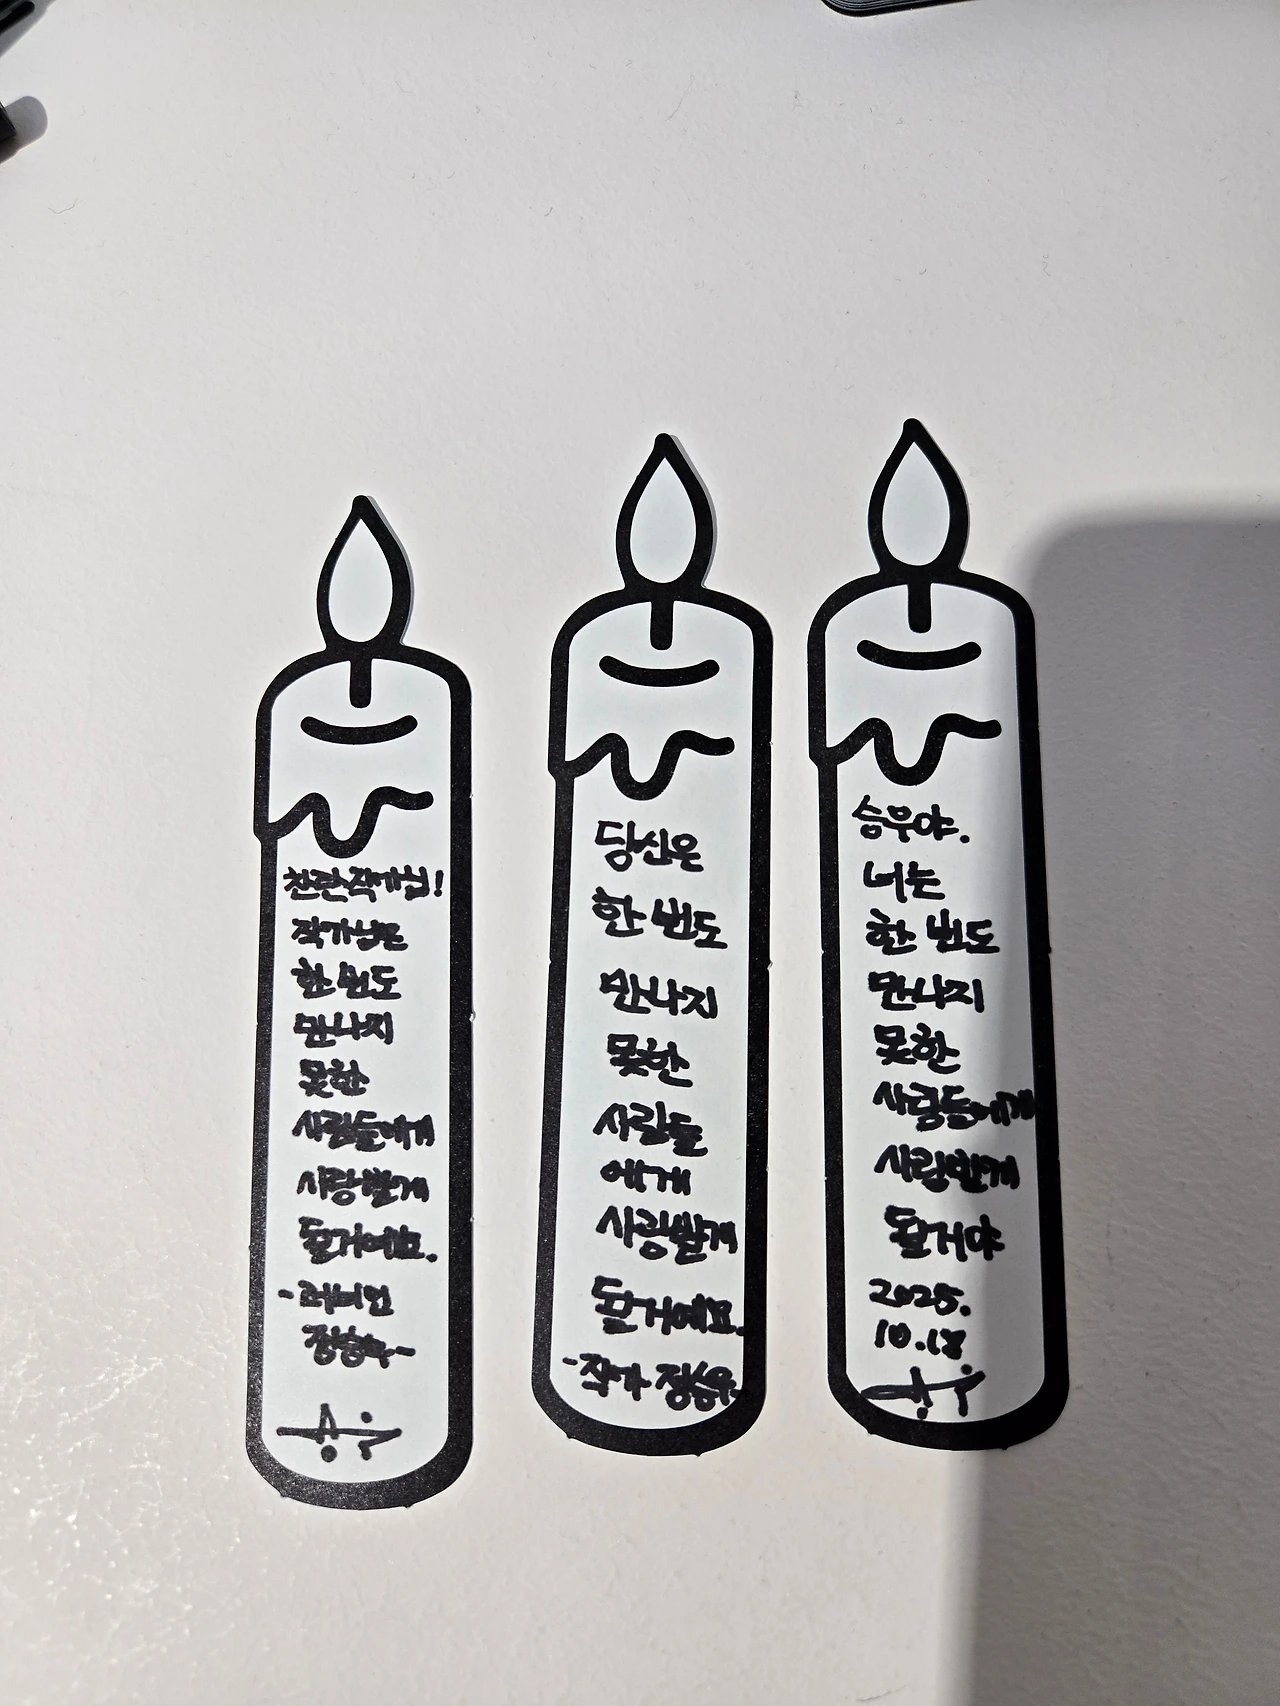 찬란작가님!
작가님은
한 번도
만나지
못한
사람들에게
사랑받게
될거예요.
정승우-
당신은
한 번도
만나지
못한
사람들
에게
사랑받게
될거예요.
-작가 정승우
승우야.
너는
한 번도
만나지
못한
사람들에게
사랑받게
될거야
2025.
10.18